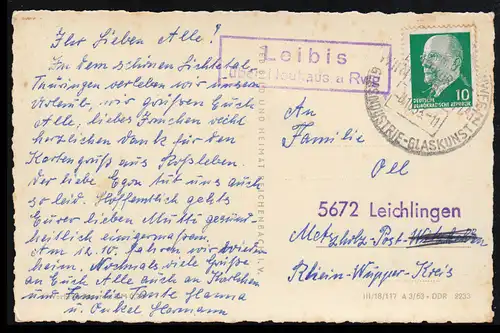 Ihr Lieben Alle!
In dem schönen Lichtetal
Thüringen verleben wir unseren
Urlaub, wir grüßen Euch
Alle, liebes Ännchen recht
herzlichen Dank für den
Kartengruß aus Roßleben.
Der liebe Egon tut uns auch
so leid. Hoffentlich gehts
Eurer lieben Mutti gesund-
heitlich einigermaßen.
Am 12.10. fahren wir wieder
heim. Nochmals viele Grüße
an Euch Alle auch an Karlchen
und Familie Tante Hanna
u. Onkel Hermann
Leibis
über Neuhaus a Rwg
BILD UND HEIMAT REICHENBACH I. V.
DEUTSCHE
DEMOKRATISCHE REPUBLIK
10
GLASINDUSTRIE-GLASKUNST
An
Familie
Oel
5672 Leichlingen
Metzholz-Post-
Rhein-Wupper-Kreis
III/18/177 A 3/63 · DDR 2230